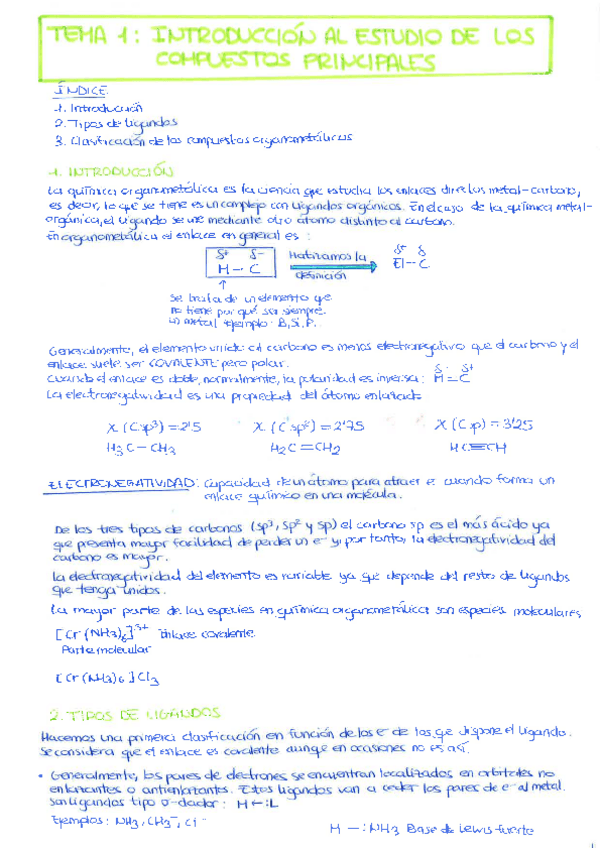 TEMA 1: INTRODUCCIÓN AL ESTUDIO DE LOS
COMPUESTOS PRINCIPALES
ÍNDICE
1. Introducción
2. Tipos de ligandos
3. Clasificación de los compuestos organometálicos
1. INTRODUCCIÓN
La química organometálica es la ciencia que estudia los enlaces directos metal-carbono,
es decir, lo que se tiene es un complejo con ligandos orgánicos. En el caso de la química metal-
orgánica, el ligando se une mediante otro átomo distinto al carbono.
En organometálica el enlace en general es :
δ+ δ-
M - C
Matizamos la
definición
δ+ δ
El - C
Se trata de un elemento qe
no tiene por qué ser siempre
un metal Ejemplo: B, Si, P..
Generalmente, el elemento unido al carbono es menos electronegativo que el carbono y el
enlace suele ser COVALENTE pero polar.
Cuando el enlace es doble, normalmente, la polaridad es inversa:
δ- δ+
M = C
La electronegatividad es una propiedad del átomo enlazado
X (Csp³) = 2'5 X (C sp²) = 2'75 X (C sp) = 3'25
H3C - CH3 H2C = CH2 HC≡CH
ELECTRONEGATIVIDAD: Capacidad de un átomo para atraer e⁻ cuando forma un
enlace químico en una molécula.
De los tres tipos de carbonos (sp³, sp² y sp) el carbono sp es el más ácido ya
que presenta mayor facilidad de perder un e⁻ y, por tanto, la electronegatividad del
carbono es mayor.
La electronegatividad del elemento es variable ya qe depende del resto de ligandos
que tenga unidos.
La mayor parte de las especies en química organometálica son especies moleculares
[Cr(NH3)6]3+ Enlace covalente
Parte molecular
[Cr(NH3)6]Cl3
2. TIPOS DE LIGANDOS
Hacemos una primera clasificación en función de los e⁻ de los qe dispone el ligando.
Se considera que el enlace es covalente aunqe en ocasiones no es así.
• Generalmente, los pares de electrones se encuentran localizados en orbitales no
enlazantes o antienlazantes. Estos ligandos van a ceder los pares de e⁻ al metal.
Son ligandos tipo σ-dador: M ←:L
Ejemplos: NH3, CH3⁻, Cl⁻
M - :NH3 Base de Lewis fuerte